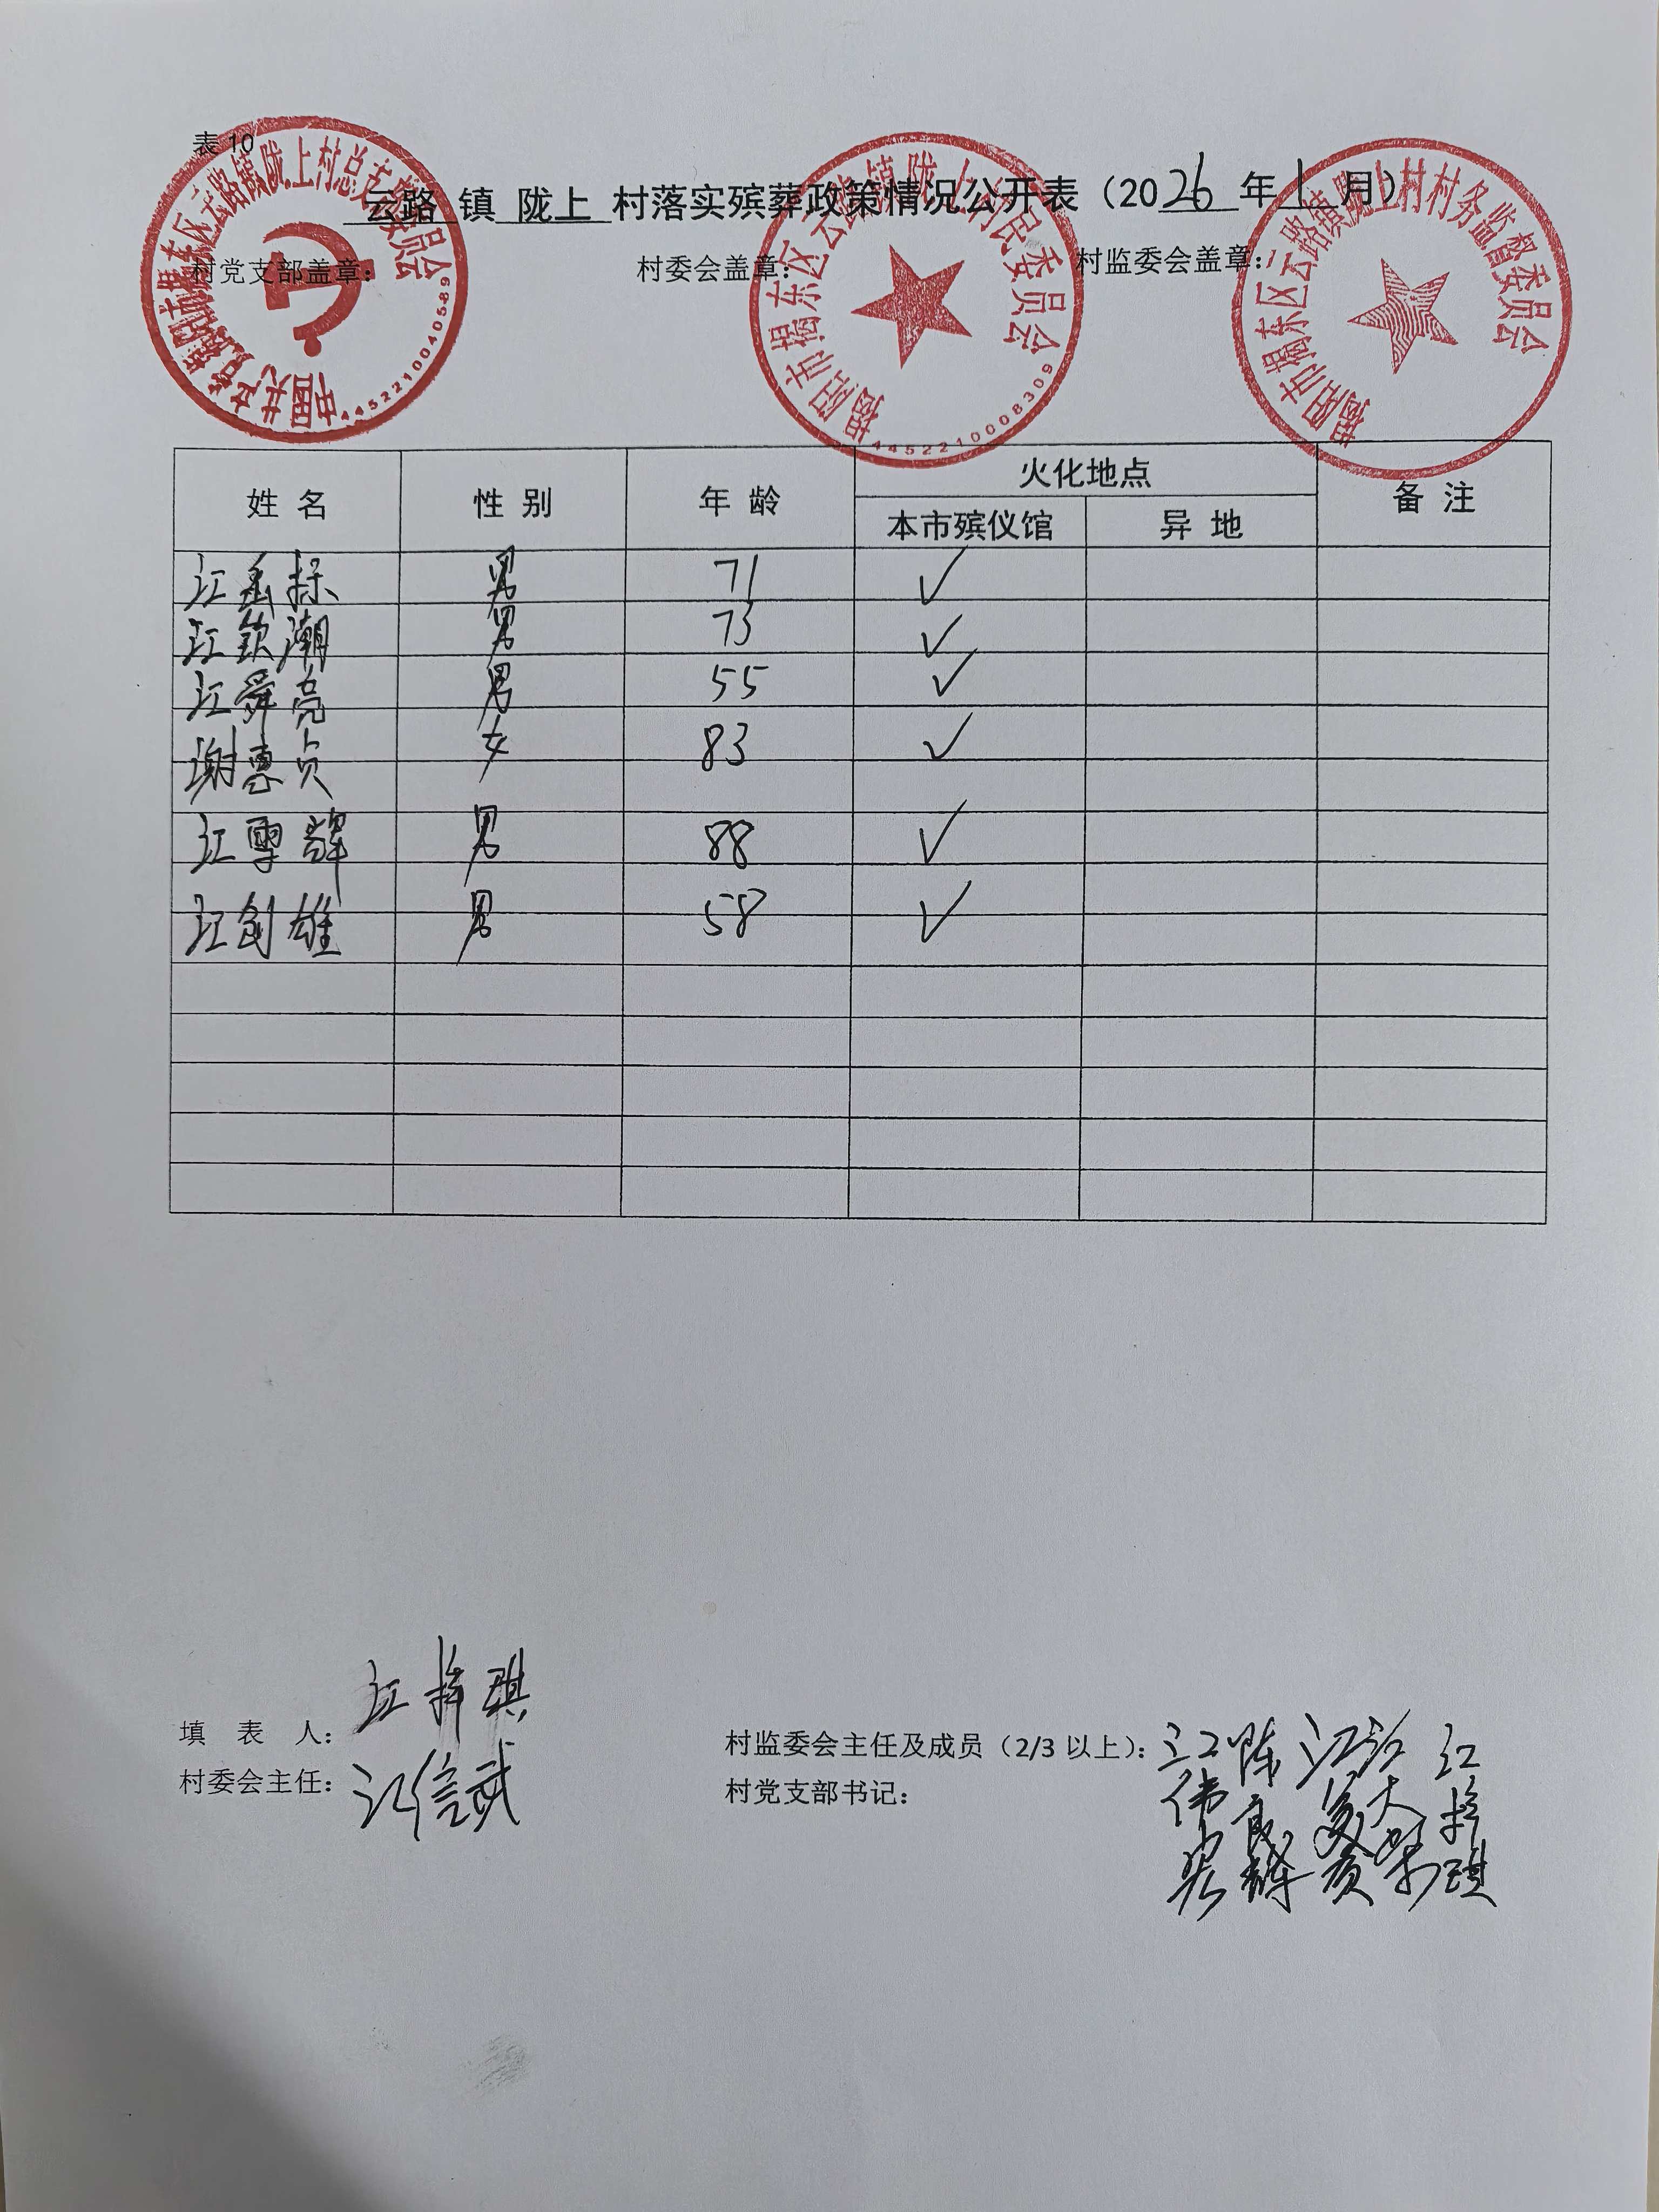 表 10
云路 镇 陇上 村落实殡葬政策情况公开表（2026年1月）
村党支部盖章： 村委会盖章： 村监委会盖章：
中国共产党揭阳市揭东区云路镇陇上村总支部委员会
4452210040589
揭阳市揭东区云路镇陇上村村民委员会
4452210008309
揭阳市揭东区云路镇陇上村村务监督委员会
姓 名 性 别 年 龄 火化地点 备 注
本市殡仪馆 异 地
江 男 71 ✓
江钦潮 男 73 ✓
江舜亮 男 55 ✓
谢惠贞 女 83 ✓
江 辉 男 88 ✓
江创雄 男 58 ✓
填 表 人： 江 琪
村委会主任： 江信武
村监委会主任及成员（2/3 以上）： 江伟 陈良辉 江 江大 江 琪
村党支部书记：